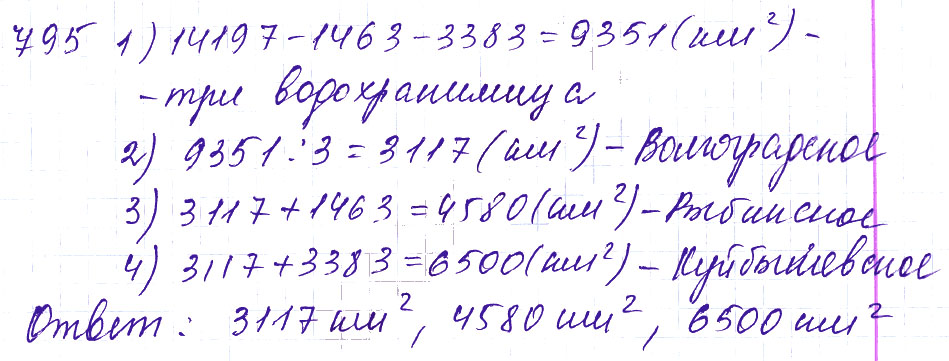 795 1) 14197 - 1463 - 3383 = 9351 (км²) -
- три водохранилища
2) 9351 : 3 = 3117 (км²) - Волгоградское
3) 3117 + 1463 = 4580 (км²) - Рыбинское
4) 3117 + 3383 = 6500 (км²) - Куйбышевское
Ответ: 3117 км², 4580 км², 6500 км²